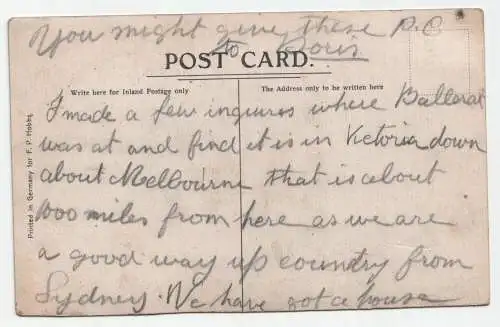 You might give these P.C
to Doris
POST CARD.
Write here for Inland Postage only
The Address only to be written here
I made a few inquires where Ballarat
was at and find it is in Victoria down
about Melbourne that is about
1000 miles from here as we are
a good way up country from
Sydney. We have got a house
Printed in Germany for F. P. Hobbs